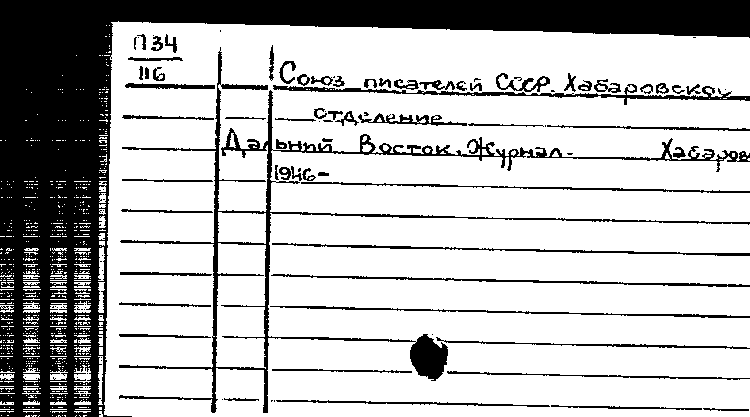 П34
116
Союз писателей СССР. Хабаровской
отделение.
Дальний Восток. Журнал. Хабаров
1946-